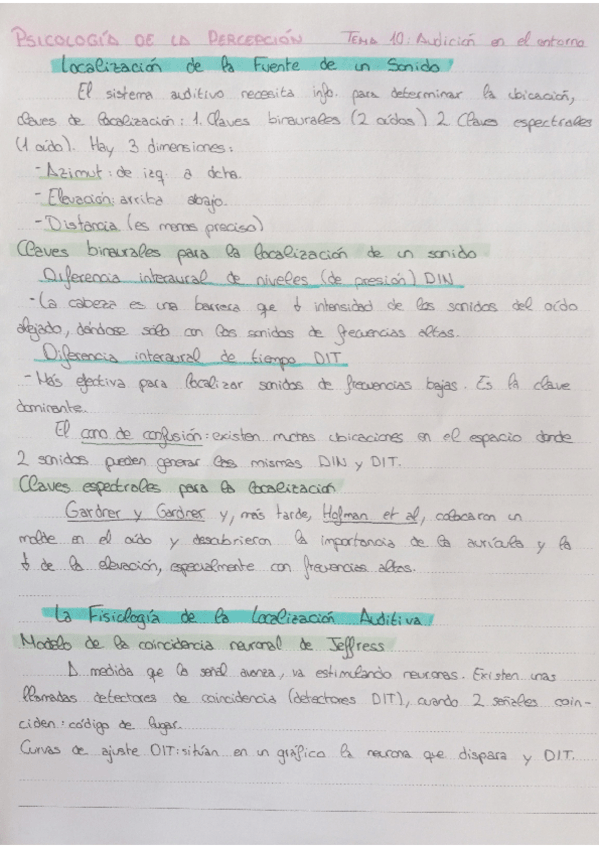 PSICOLOGÍA DE LA PERCEPCIÓN TEMA 10: Audición en el entorno
Localización de la Fuente de un Sonido
El sistema auditivo necesita info. para determinar la ubicación,
claves de localización: 1. Claves binaurales (2 oídos) 2 Claves espectrales
(1 oído). Hay 3 dimensiones:
- Azimut: de izq. a dcha.
- Elevación: arriba abajo.
- Distancia (es menos preciso)
Claves binaurales para la localización de un sonido
Diferencia interaural de niveles (de presión) DIN
- La cabeza es una barrera que ↓ intensidad de los sonidos del oído
alejado, dándose solo con los sonidos de frecuencias altas.
Diferencia interaural de tiempo DIT
- Más efectiva para localizar sonidos de frecuencias bajas. Es la clave
dominante.
El cono de confusión: existen muchas ubicaciones en el espacio donde
2 sonidos pueden generar las mismas DIN y DIT.
Claves espectrales para la localización
Gardner y Gardner y, más tarde, Hofman et al, colocaron un
molde en el oído y descubrieron la importancia de la aurícula y la
↓ de la elevación, especialmente con frecuencias altas.
La Fisiología de la Localización Auditiva
Modelo de la coincidencia neuronal de Jeffress
A medida que la señal avanza, va estimulando neuronas. Existen unas
llamadas detectores de coincidencia (detectores DIT), cuando 2 señales coin-
ciden: código de lugar.
Curvas de ajuste DIT: sitúan en un gráfico la neurona que dispara y DIT.